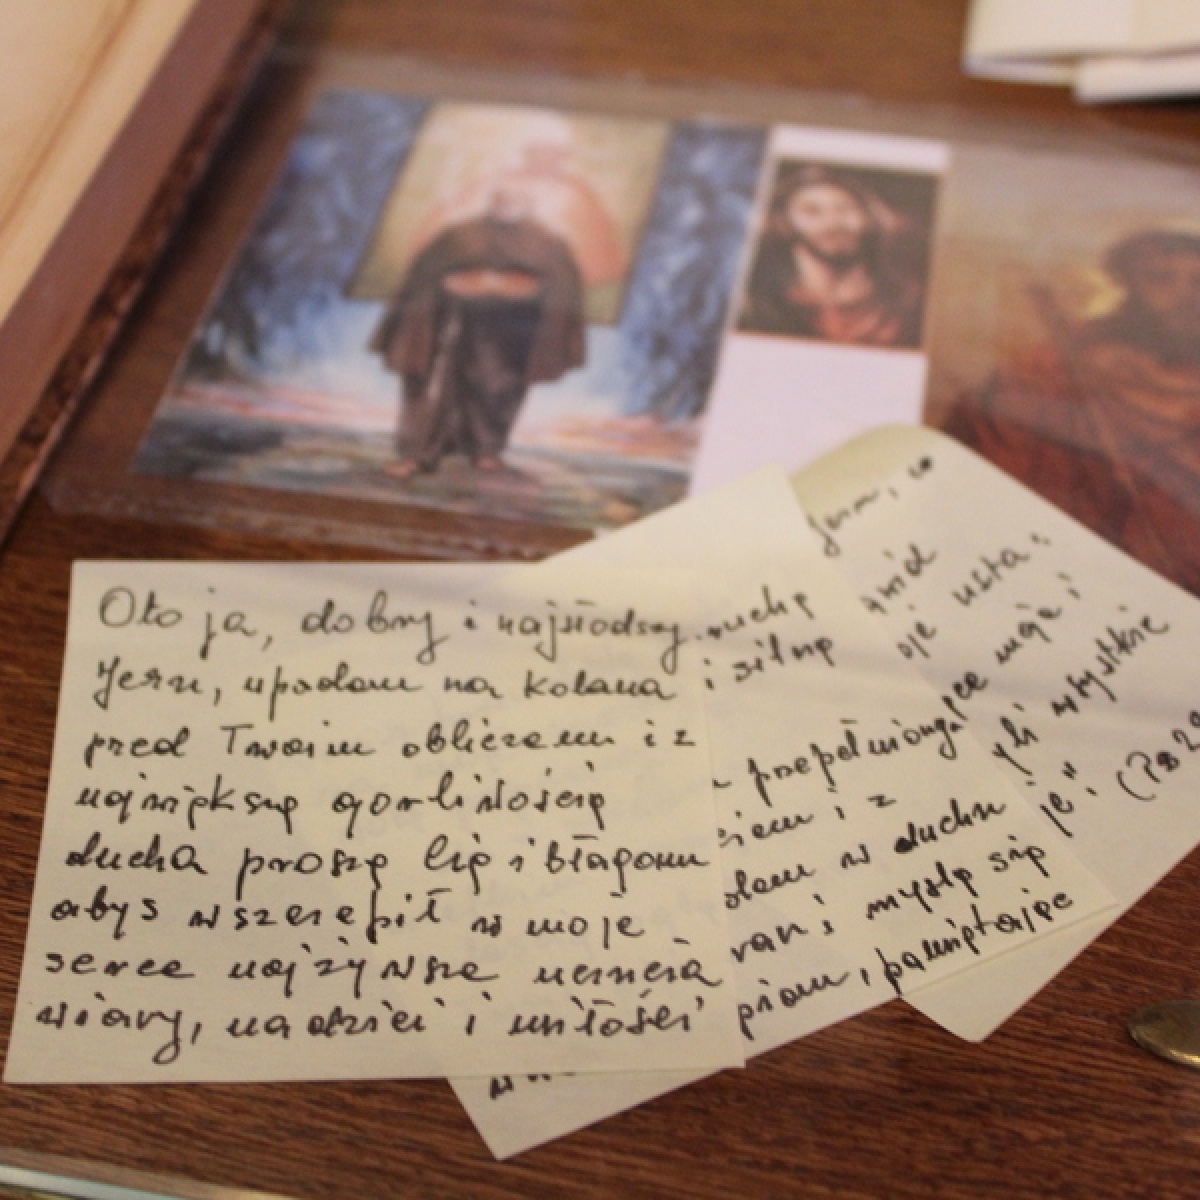 Oto ja, dobry i najsłodszy
Jezu, upadam na kolana
przed Twoim obliczem i z
największą gorliwością
ducha proszę Cię i błagam
abyś wszczepił w moje
serce najżywsze uczucia
wiary, nadziei i miłości
ruchę
i silną
przepełniony
i z
w duchu
ran i myślę się
pamiętając
usta:
moje i
wszystkie
je". (Ps 2